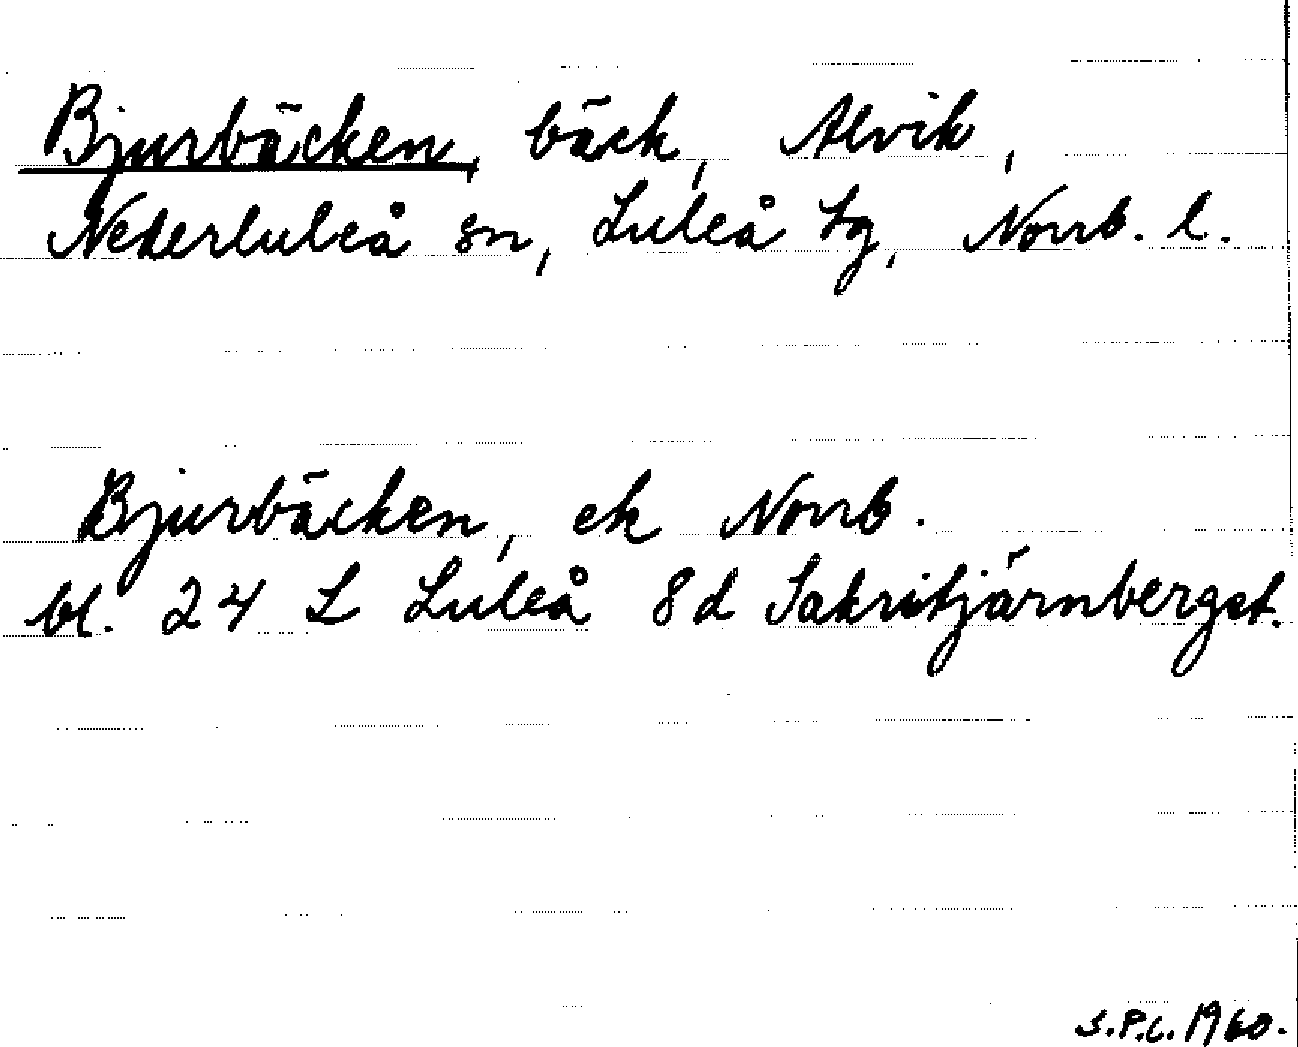 Bjurbäcken, bäck, Alvik,
Nederluleå sn, Luleå tg, Norrb. l.
Bjurbäcken, ek Norrb.
bl. 24 L Luleå 8d Sakritjärnbergst.
S.P.C. 1960.